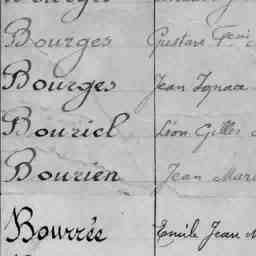 Bourges Gustave
Bourges Jean Ignace
Bouriel Léon Gilles
Bourien Jean Mari
Bourrée Emile Jean M